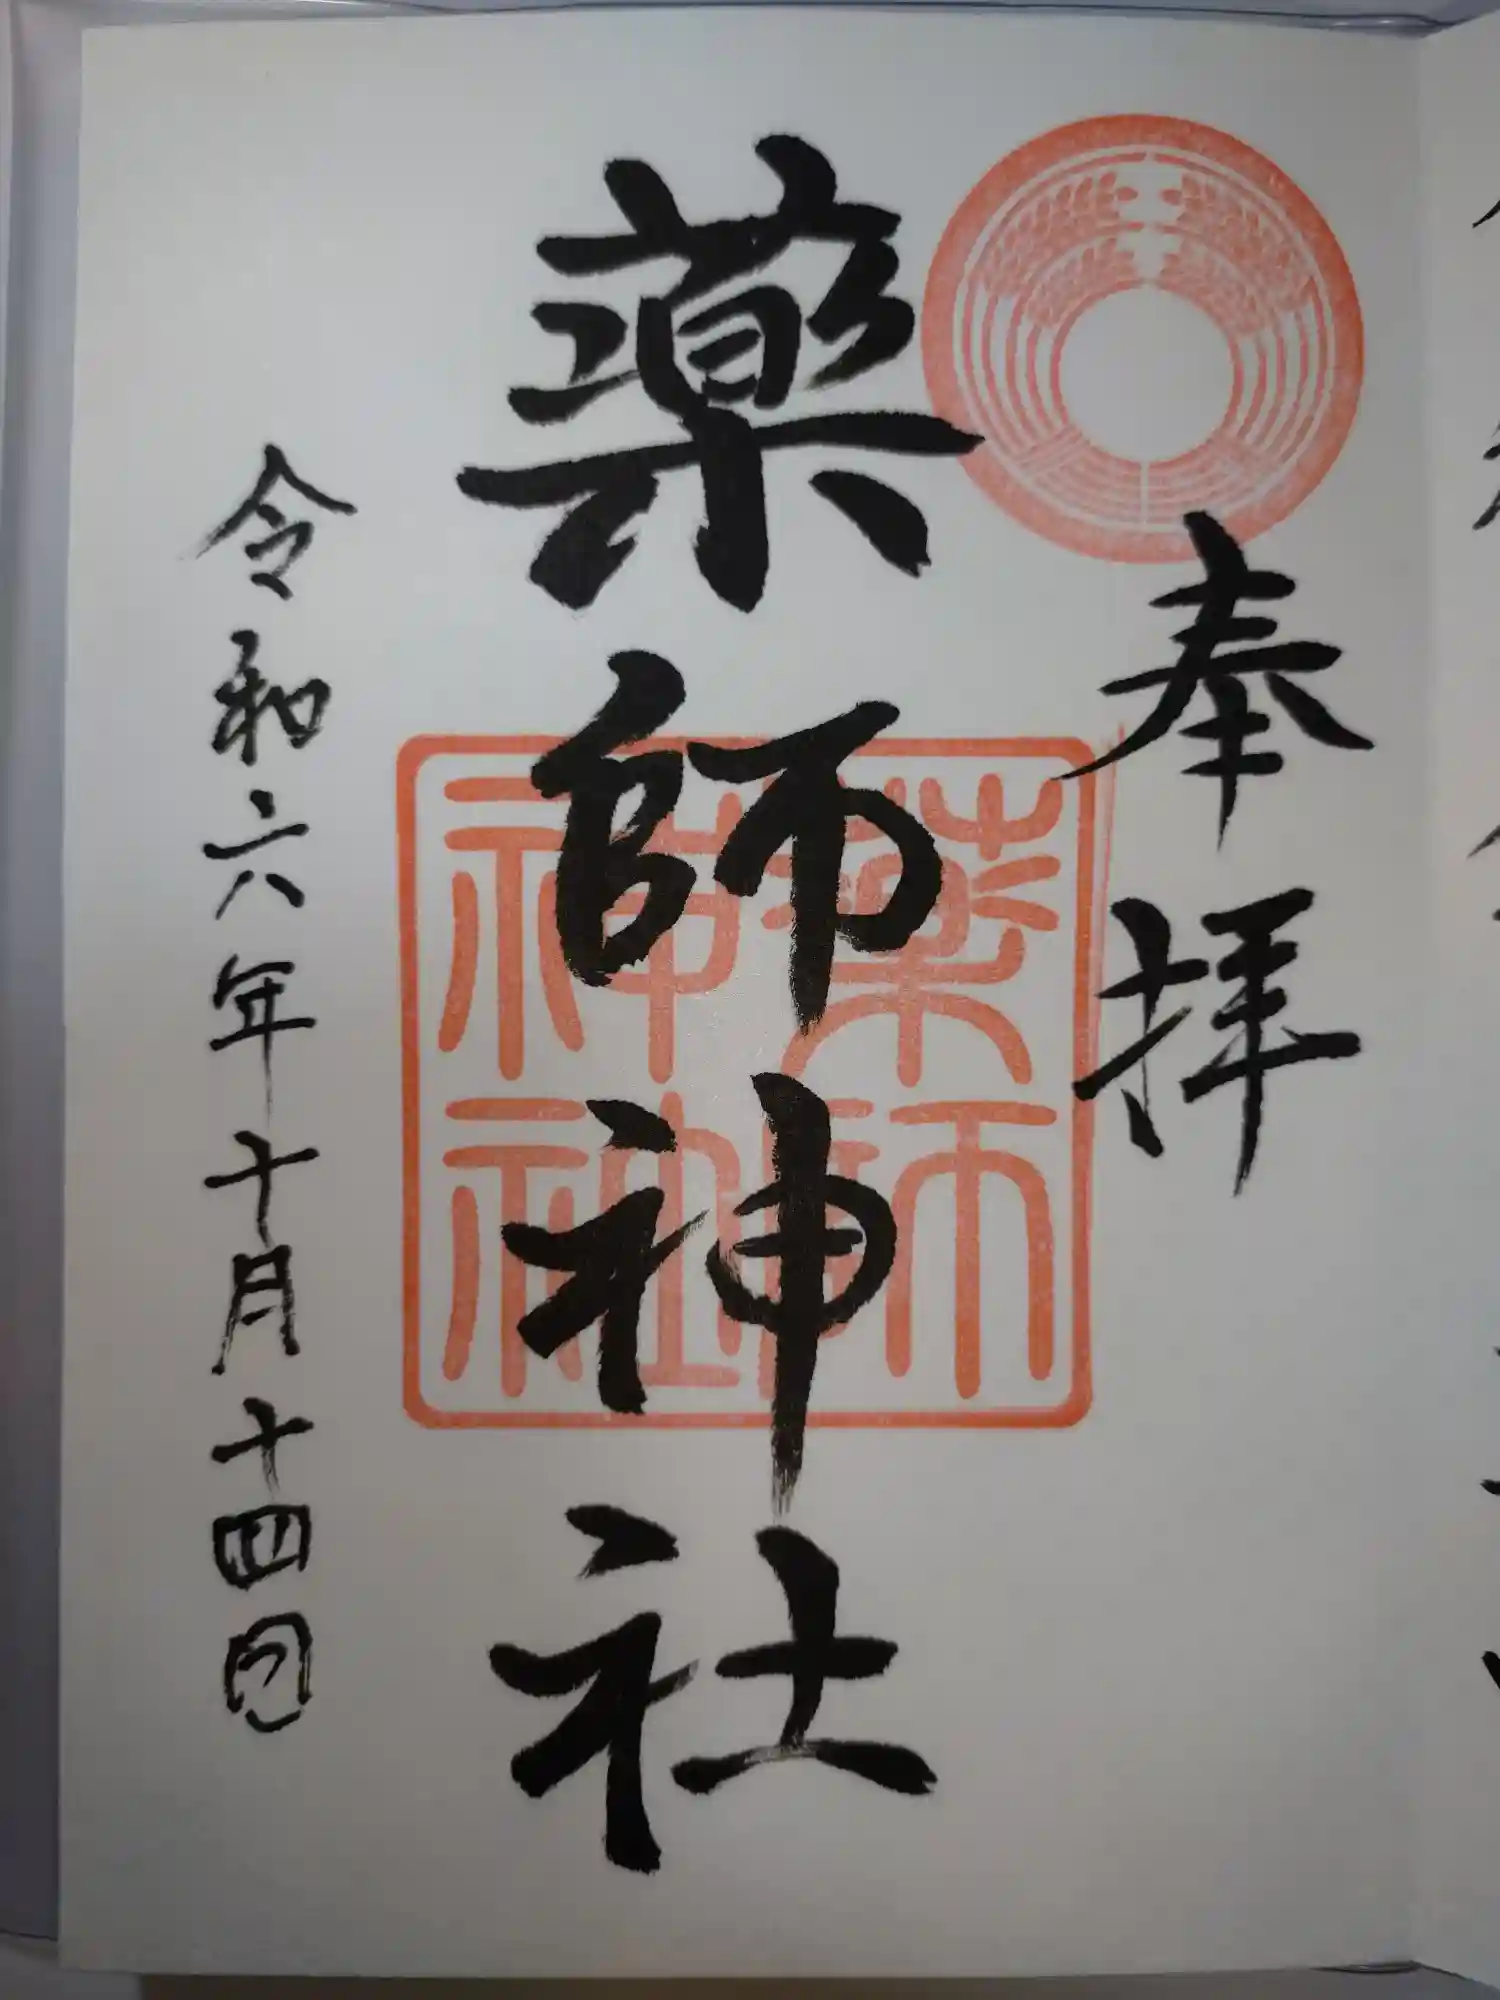 奉拝
薬師神社
薬師
神社
令和六年十月十四日